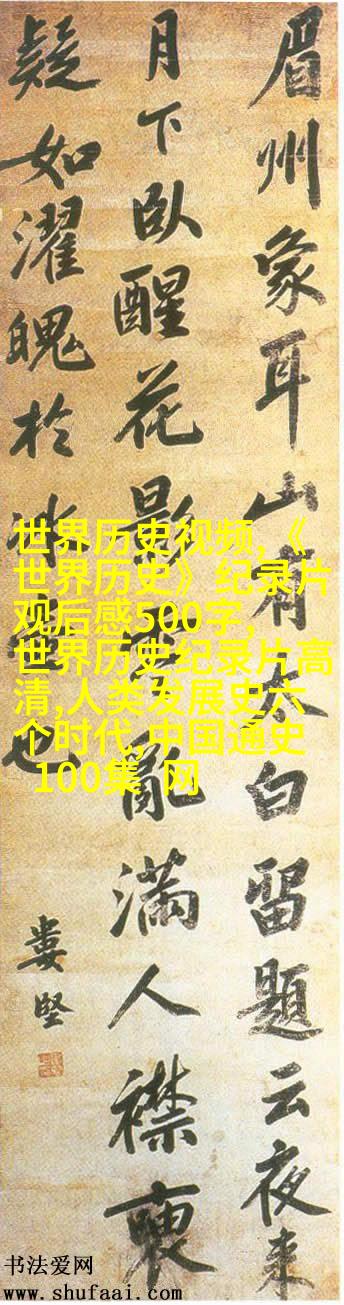 眉州象耳山有太白留題云夜来
月下臥醒花影亂滿人襟
疑如濯魄於冰也
婁堅
世界历史视频,《
世界历史》纪录片
观后感500字,
世界历史纪录片高
清,人类发展史六
个时代,中国通史
100集 网
书法爱网
www.shufaai.com